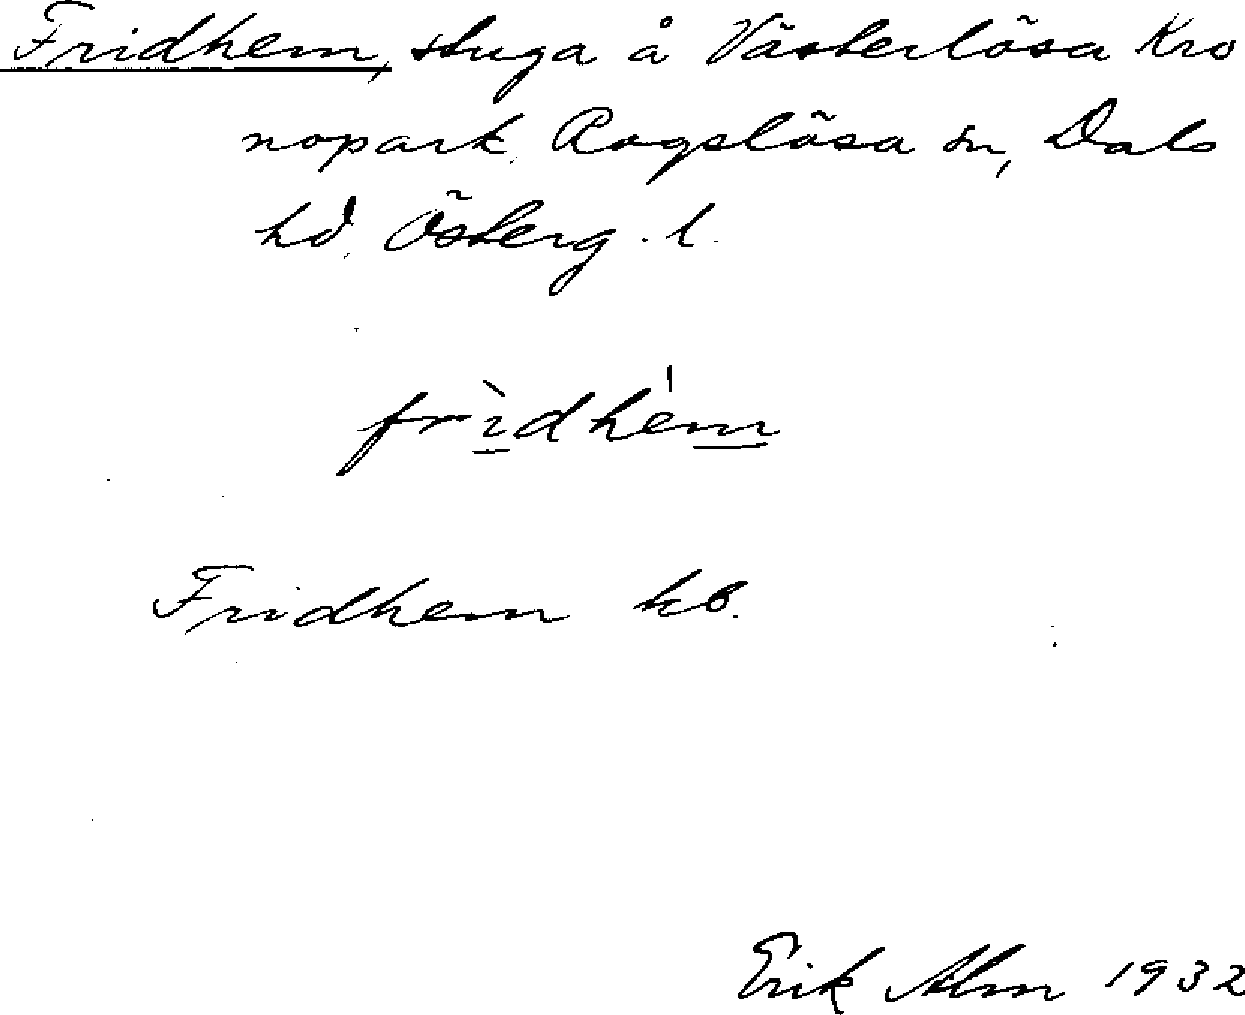 Fridhem, stuga å Västerlösa Kro
nopark, Rogslösa sn, Dals
hd, Österg. l.
frìdhém
Fridhem kb.
Erik Alm 1932